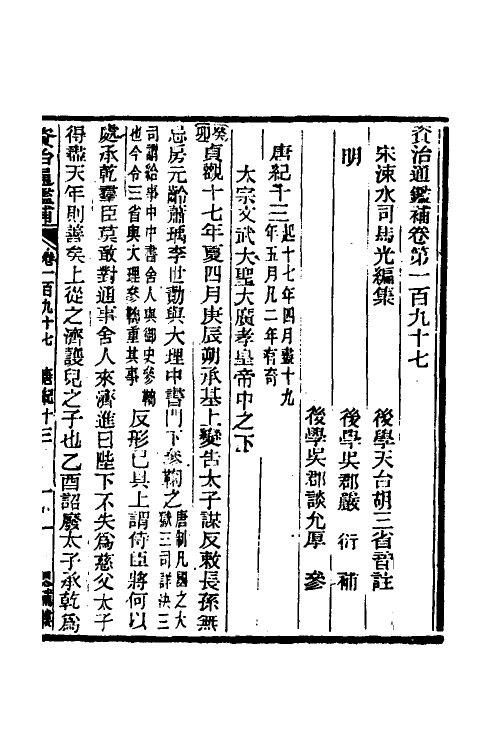 資治通鑑補卷第一百九十七
宋涑水司馬光編集
後學天台胡三省音註
明
後學吳郡嚴衍補
後學吳郡談允厚參
唐紀十三起十七年四月盡十九年五月凡二年有奇
太宗文武大聖大廣孝皇帝中之下
癸卯貞觀十七年夏四月庚辰朔承基上變告太子謀反敕長孫無
忌房元齡蕭瑀李世勣與大理中書門下參鞫之唐制凡國之大獄三司詳決三
司謂給事中中書舍人與御史參鞫也今令三省與大理參鞫重其事反形已具上謂侍臣將何以
處承乾羣臣莫敢對通事舍人來濟進曰陛下不失爲慈父太子
得盡天年則善矣上從之濟護兒之子也乙酉詔廢太子承乾爲
資治通鑑補 卷一百九十七 唐紀十三 一 思補樓